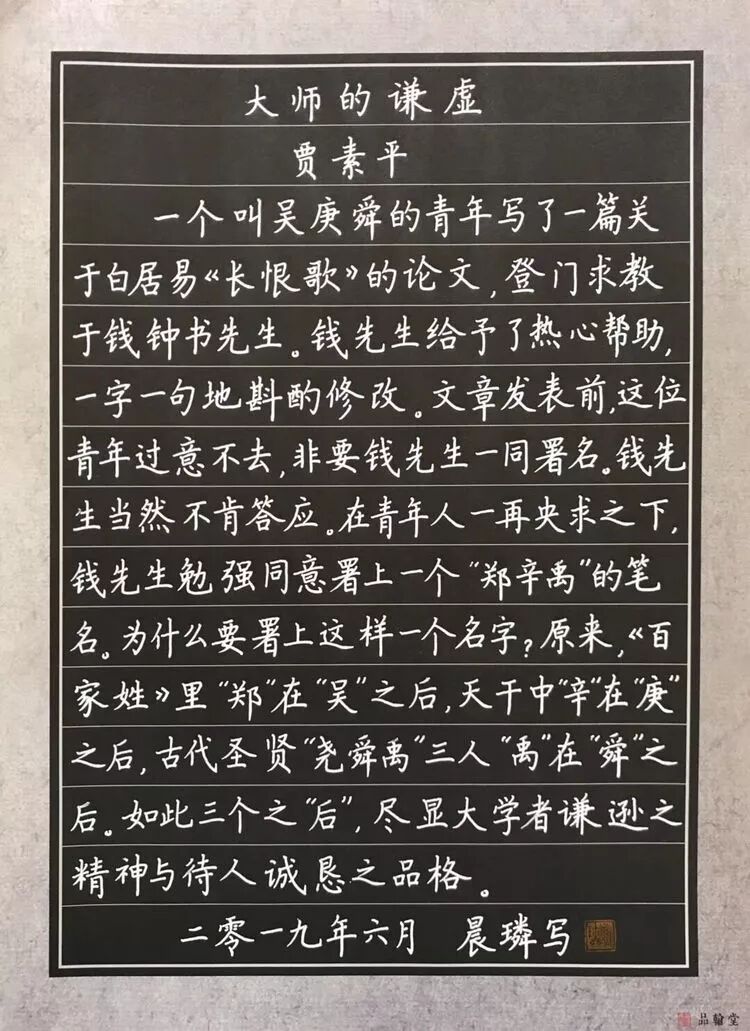 大师的谦虚
贾素平
一个叫吴庚舜的青年写了一篇关
于白居易《长恨歌》的论文,登门求教
于钱钟书先生。钱先生给予了热心帮助,
一字一句地斟酌修改。文章发表前,这位
青年过意不去,非要钱先生一同署名。钱先
生当然不肯答应。在青年人一再央求之下,
钱先生勉强同意署上一个“郑辛禹”的笔
名。为什么要署上这样一个名字?原来,《百
家姓》里“郑”在“吴”之后,天干中“辛”在“庚”
之后,古代圣贤“尧舜禹”三人“禹”在“舜”之
后。如此三个之“后”,尽显大学者谦逊之
精神与待人诚恳之品格。
二零一九年六月 晨璘写
品翰堂